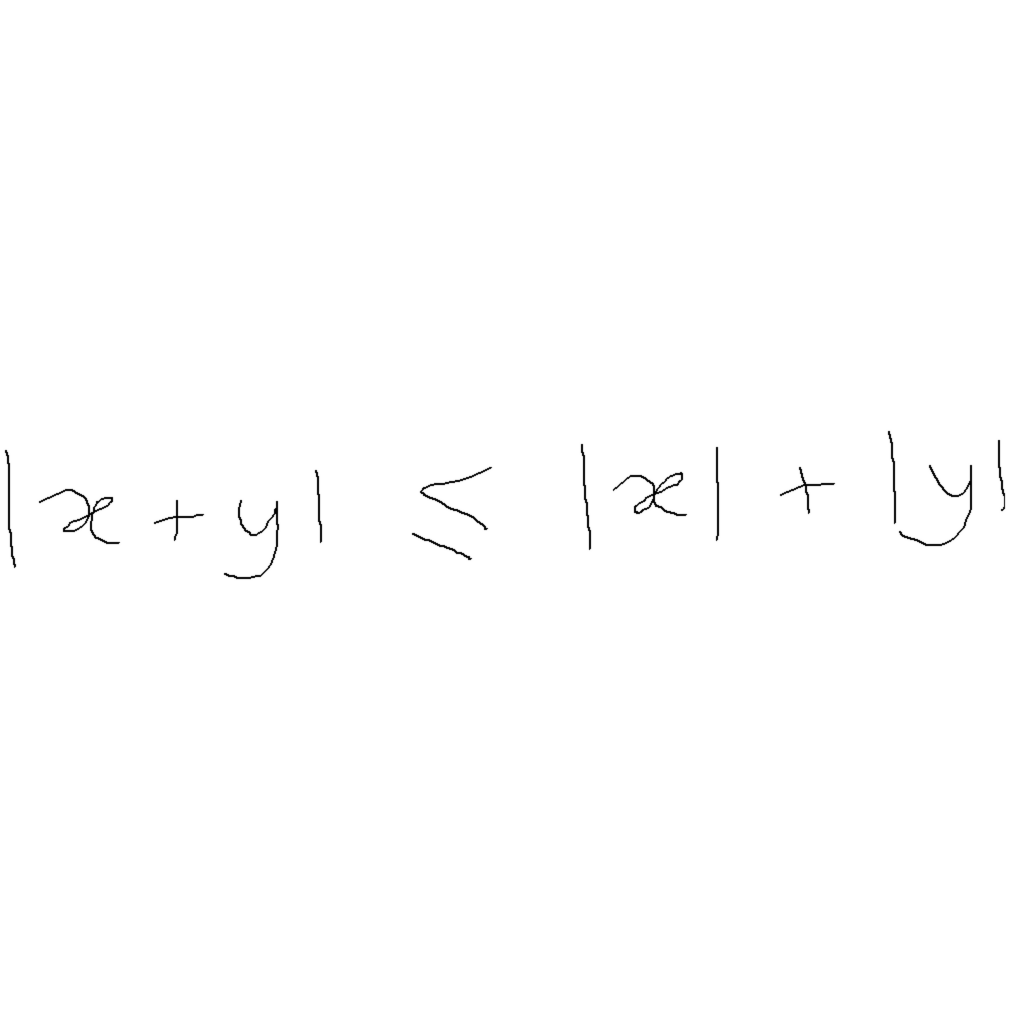 |x+y| ≤ |x| + |y|